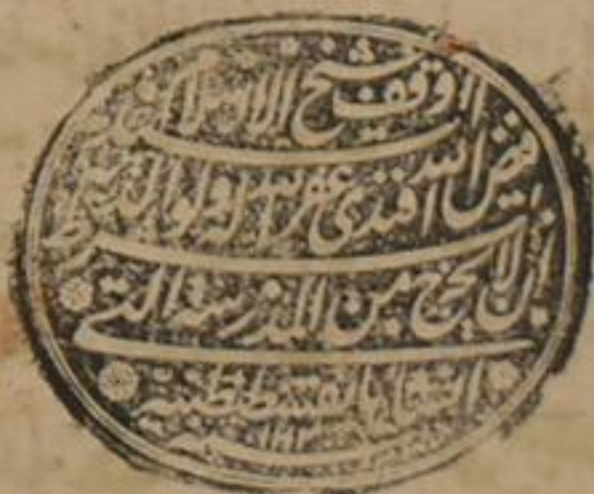 وقف شيخ الاسلام
فيض الله افندى غفر الله له ولوالديه
بشرط
ان لا يخرج من المدرسة التي
انشأها بقسطنطينية
سنة ١١١٢